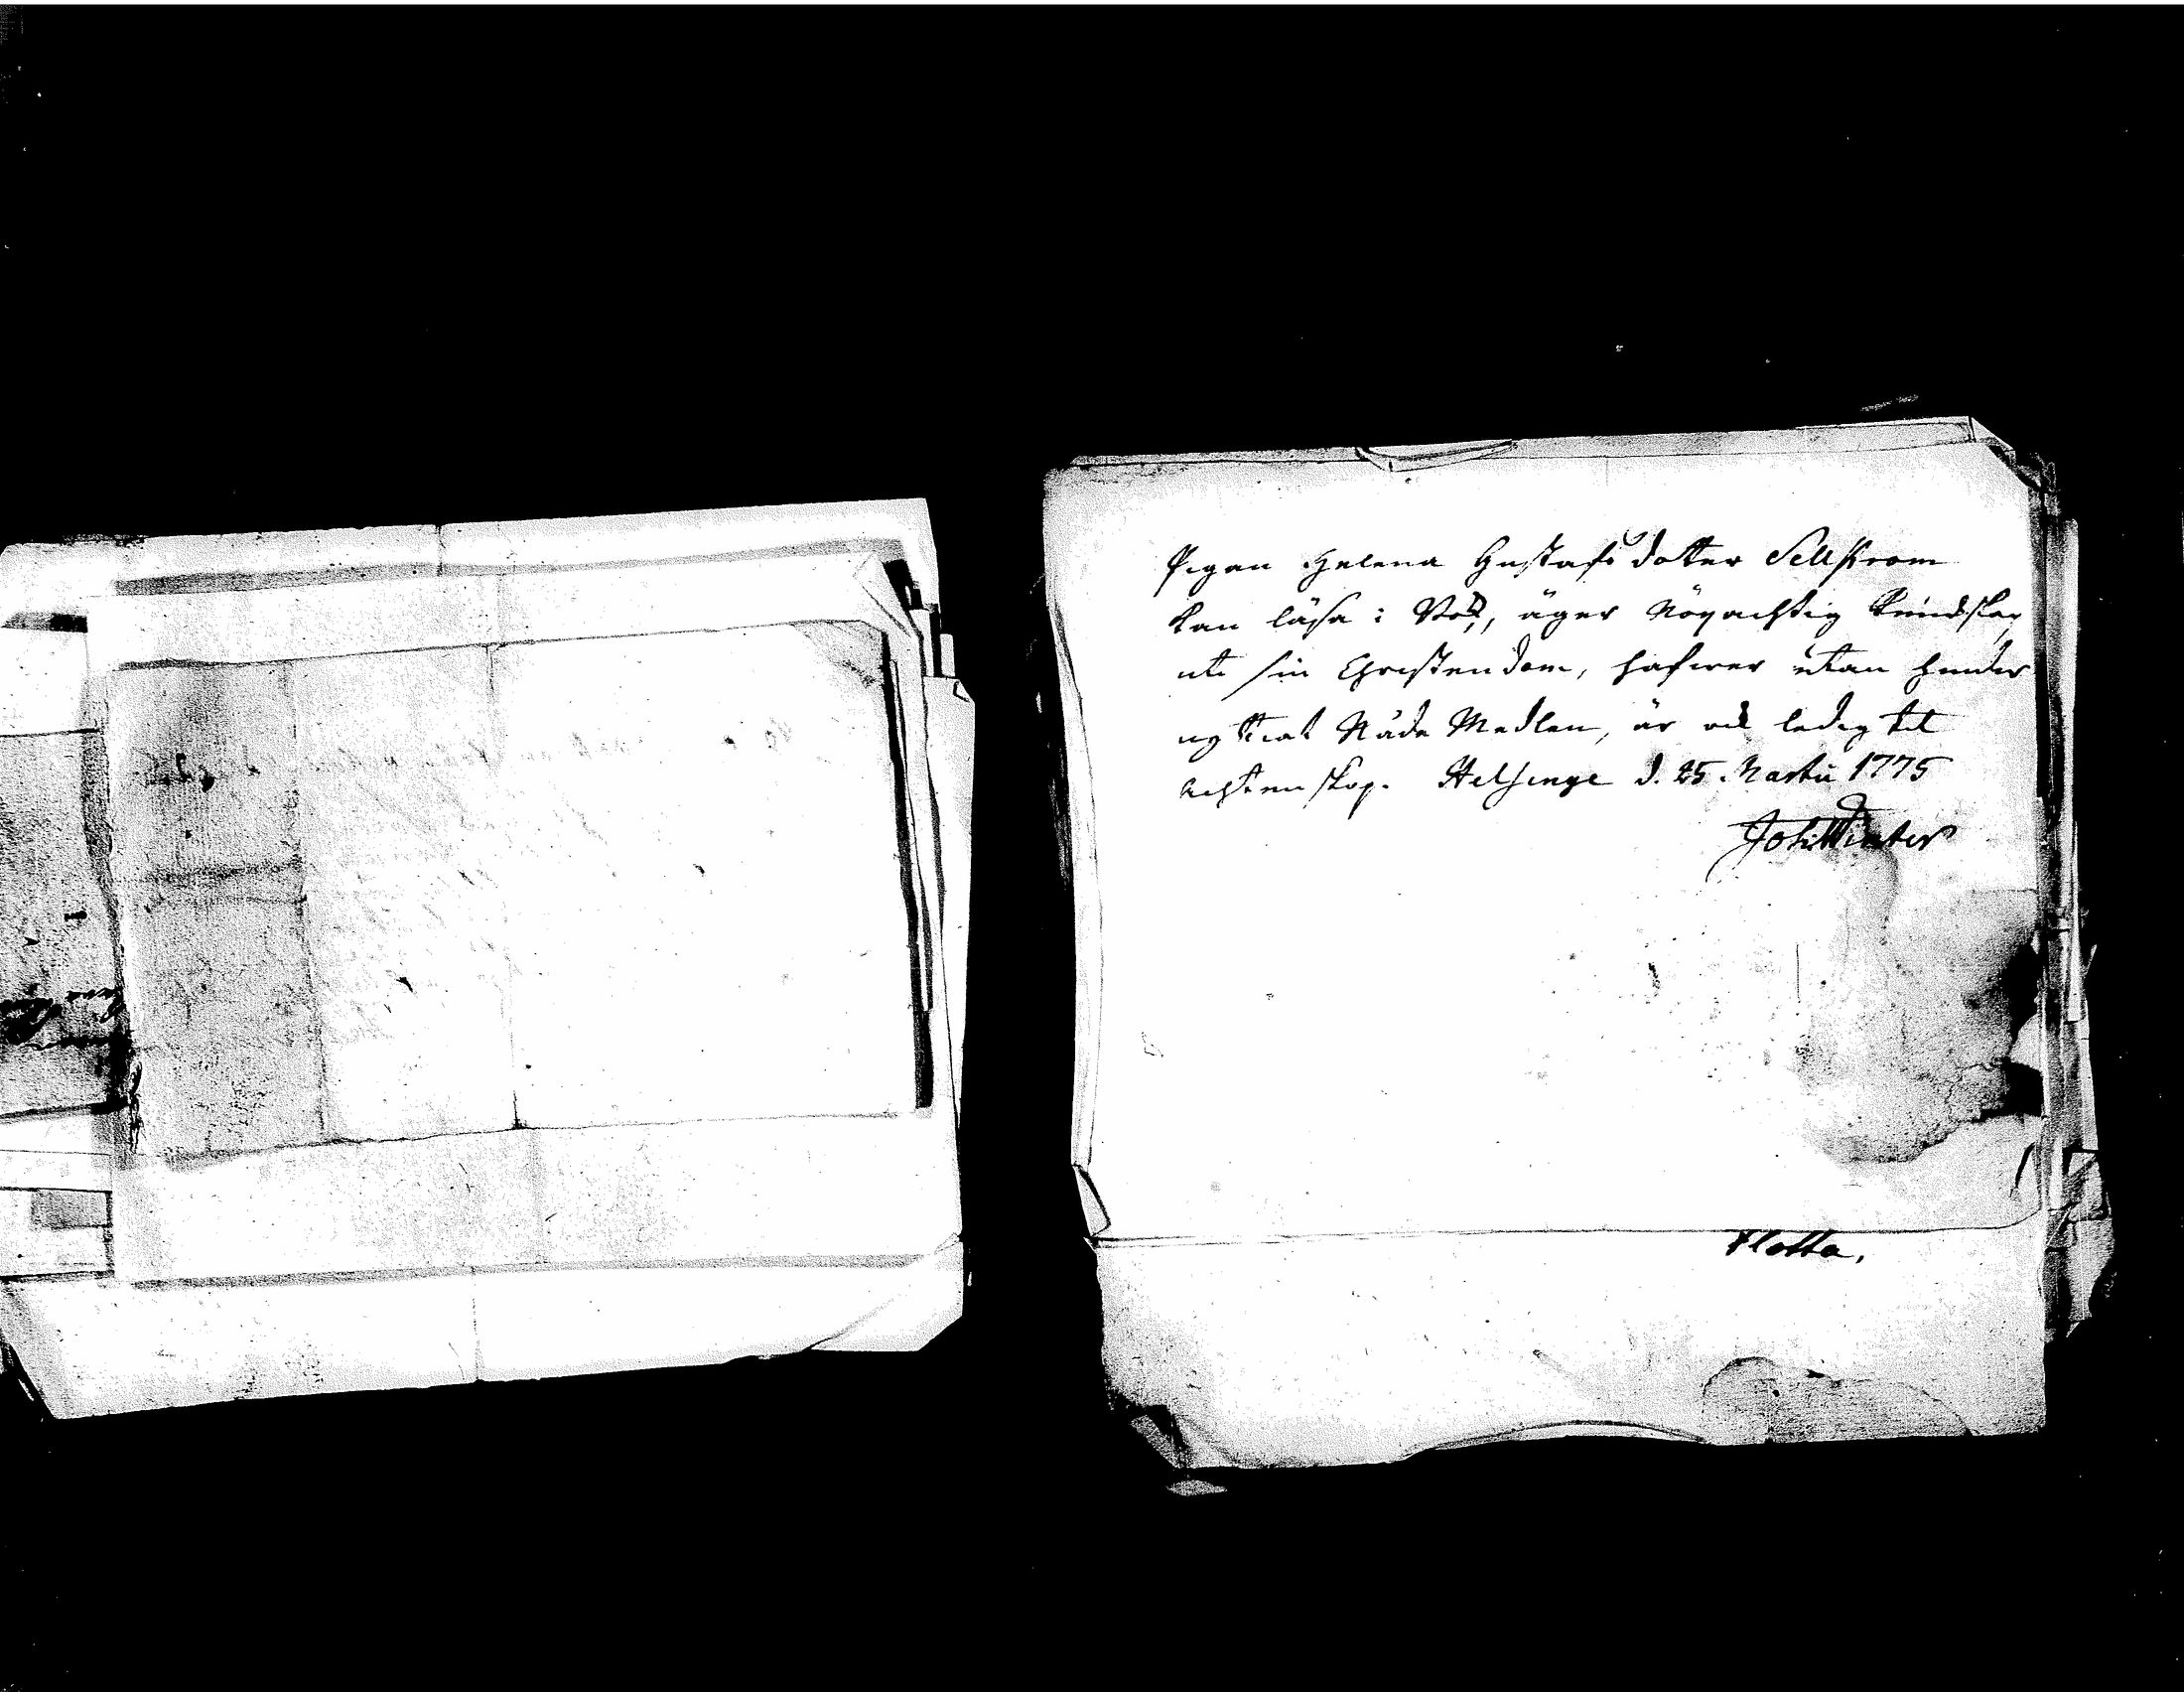 Pigan Helena Gustafs dotter Sellstrom
kan läsa i Bok, äger Nögachtig kundskap
uti sin Christendom, hafwer utan hinder
nyttiat Nåde Medlen, är ock ledig til
Achtenskap. Helsinge d. 25 Martii 1775
Joh: Winter
Flotta.